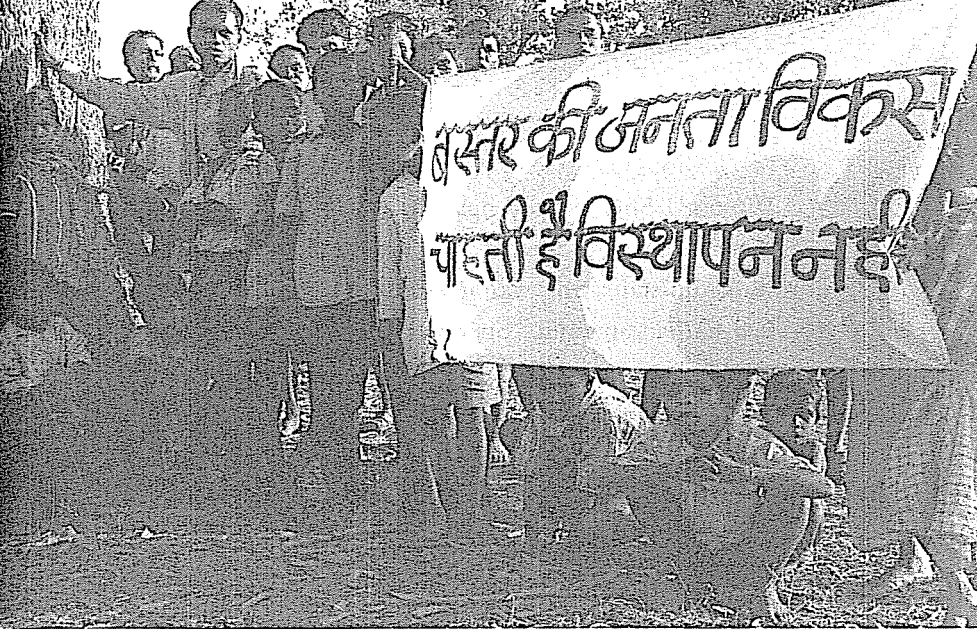 बस्तर की जनता विकस
चाहती है विस्थापन नही